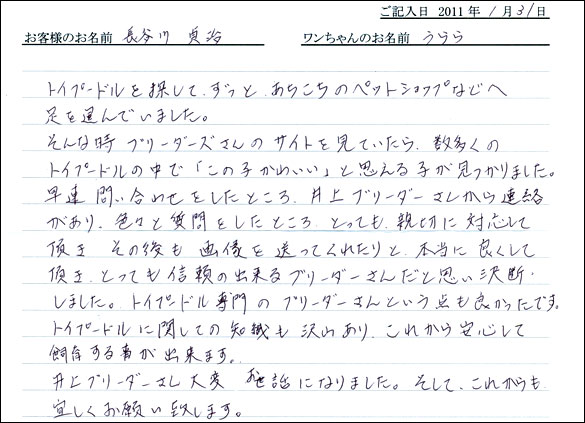 ご記入日 2011年 1月31日
お客様のお名前 長谷川 貞治 ワンちゃんのお名前 うらら
トイプードルを探して、ずっと、あちこちのペットショップなどへ
足を運んでいました。
そんな時 ブリーダーズさんのサイトを見ていたら、数多くの
トイプードルの中で「この子かわいい」と思える子が見つかりました。
早速 問い合わせをしたところ、井上ブリーダーさんから連絡
があり、色々と質問をしたところ、とっても、親切に対応して
頂き その後も 画像を送ってくれたりと、本当に良くして
頂き、とっても信頼の出来るブリーダーさんだと思い決断
しました。トイプードル専門のブリーダーさんという点も良かったです。
トイプードルに関しての知識も沢山あり、これから安心して
飼育する事が出来ます。
井上ブリーダーさん大変 お世話になりました。そして、これからも
宜しくお願い致します。